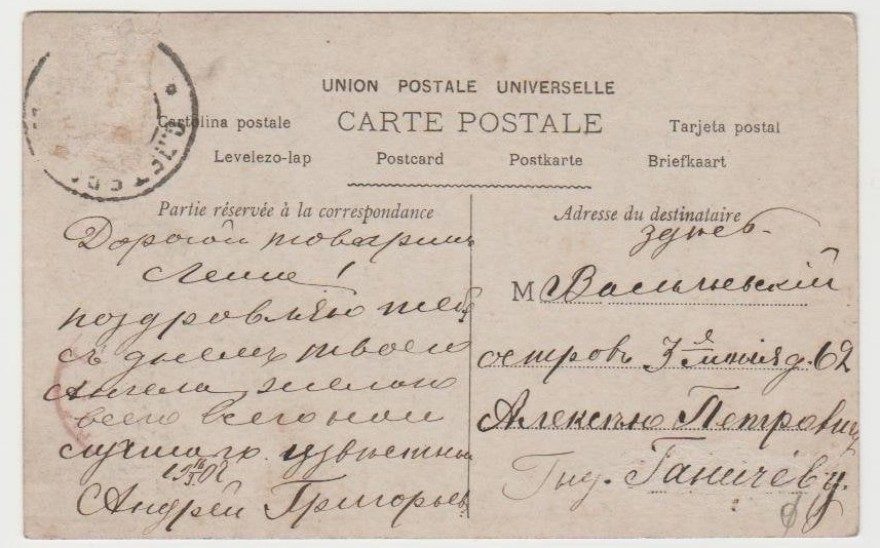 UNION POSTALE UNIVERSELLE
Cartolina postale CARTE POSTALE Tarjeta postal
Levelezo-lap Postcard Postkarte Briefkaart
Partie réservée à la correspondance
Дорогой товарищъ
Леша!
поздровляю тебя
съ днемъ твоего
Ангела желаю
всего всего наи
лучшаго извѣстный
Андрей Григорьев
Adresse du destinataire
здѣсь
M Васильевский
островъ 3 я линия д. 62
Алексѣю Петрович
Гну. Ганичеву.